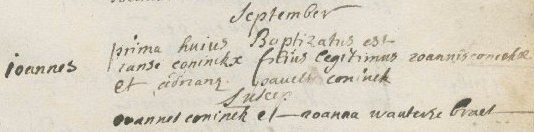 September
prima huius Baptizatus est
ioannes
ianse coninckx filius legitimus ioannis coninckx
et adriana pauels coninck
Suscep
ioannes coninck et ioanna wauterse braet